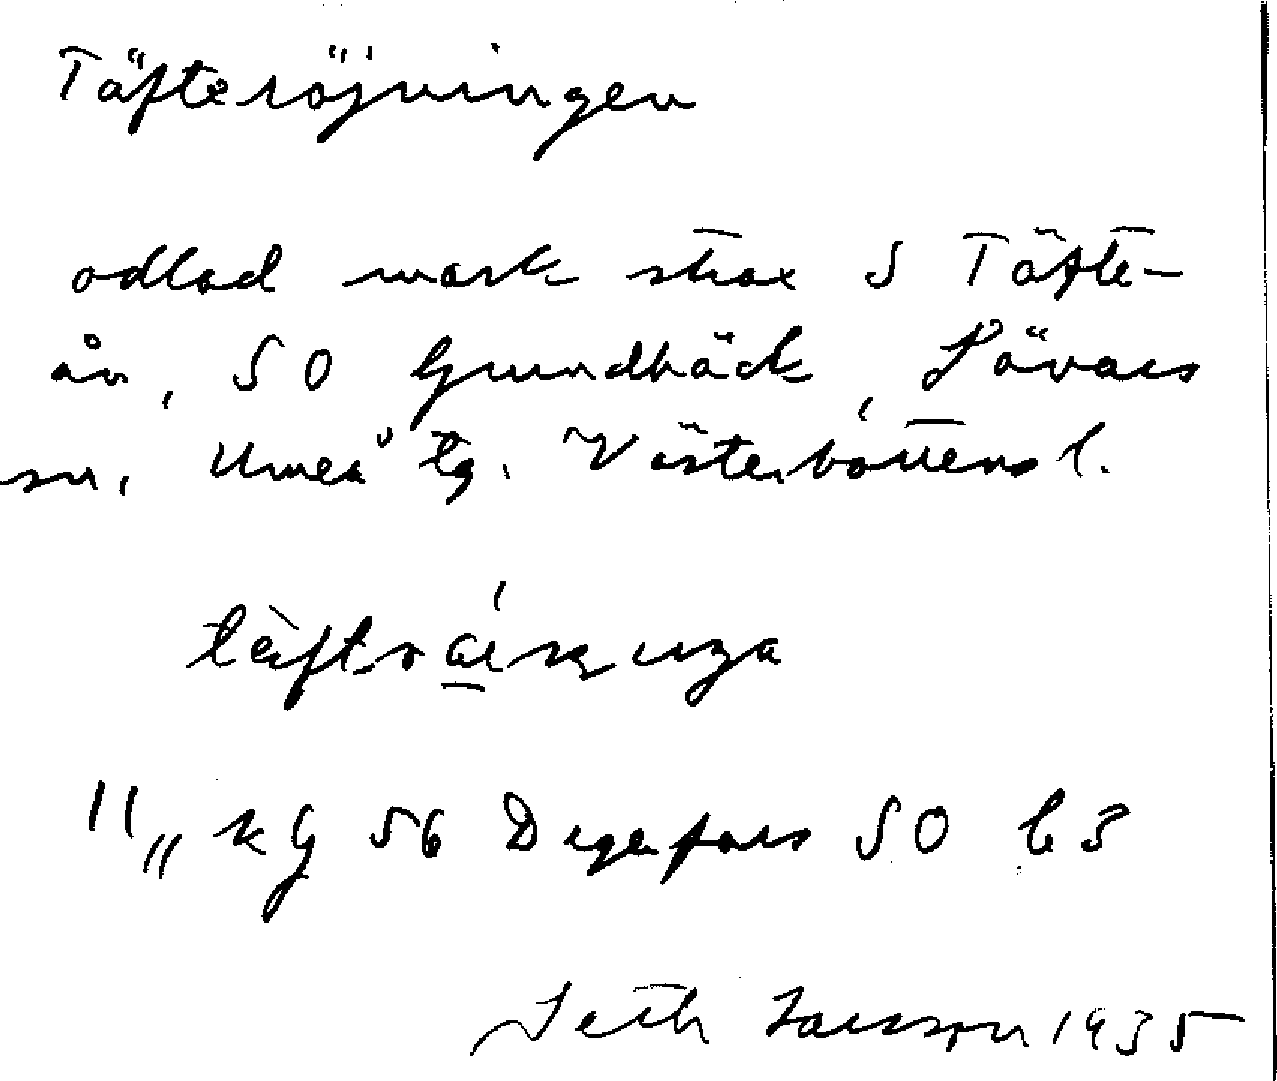 Täfteröjningen
odlad mark strax S Täfte-
ån, SO Grundbäck, Sävars
sn, Umeå tg. Västerbottens l.
"„ kg 56 Degerfors SO b3
Seth Larsson 1935